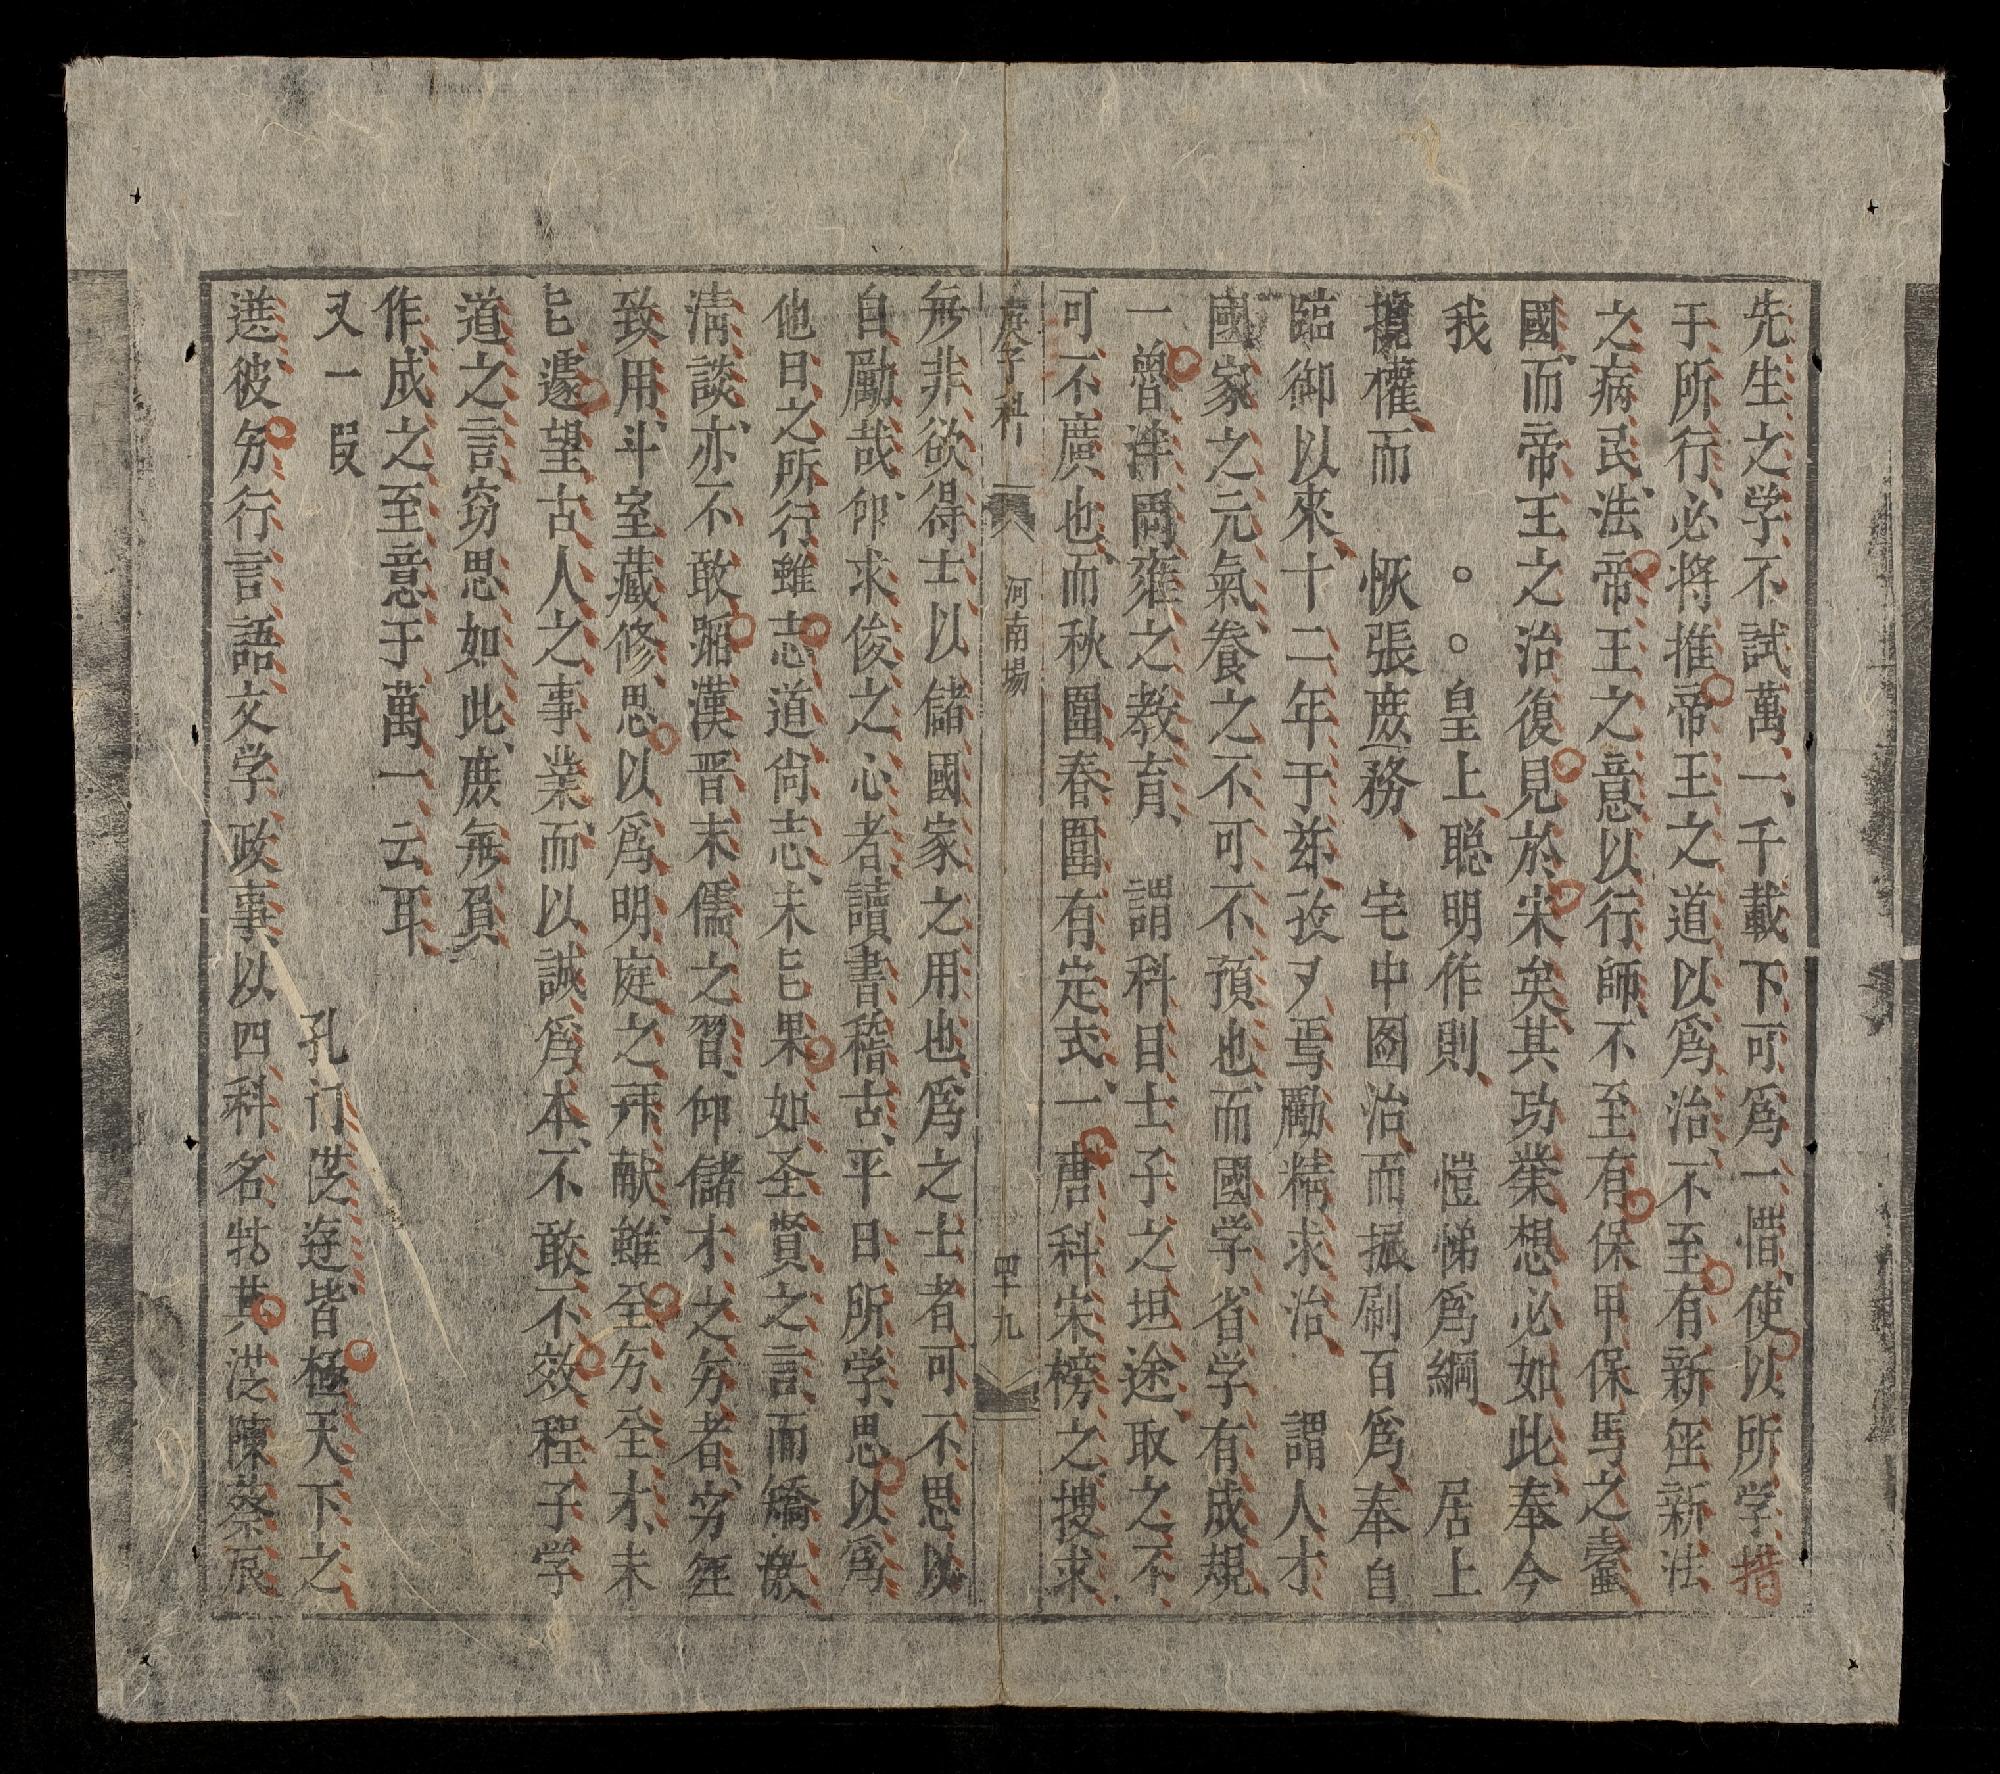 先生之学不試萬一、千載下可爲一惜、使以所学措
于所行、必将推帝王之道以爲治、不至有新莝新法
之病民、法帝王之意以行師、不至有保甲保馬之蠧
國、而帝王之治復見於宋矣、其功業想必如此、奉今
我　。。皇上、聡明作則、愷悌爲綱、居上
攬權、而　恢張庶務、宅中圖治、而振刷百爲、奉自
臨御以來、十二年于兹、孜〻焉勵精求治、謂人才
國家之元氣、養之不可不預也、而國学省学有成規
一魯泮周雍之教育、謂科目士子之坦途、取之不
可不廣也、而秋圍春圍有定式、一唐科宋榜之搜求
庚子科　河南場　四十九
無非欲得士以儲國家之用也、爲之士者、可不思以
自勵哉、仰求俊之心者、讀書稽古、平日所学、思以爲
他日之所行、雖志道尚志、未㠯果如圣賢之言、而矯激
清談、亦不敢蹈漢晋末儒之習、仰儲才之穷者、穷經
致用、斗室藏修、思以爲明庭之再献、雖全穷全才、未
㠯遽望古人之事業、而以誠爲本、不敢不效程子学
道之言、窃思如此、庶無負
作成之至意于萬一云耳、
又一段　孔门従逰皆極天下之
選彼穷行言語文学政事、以四科名、㸰其従陳蔡辰